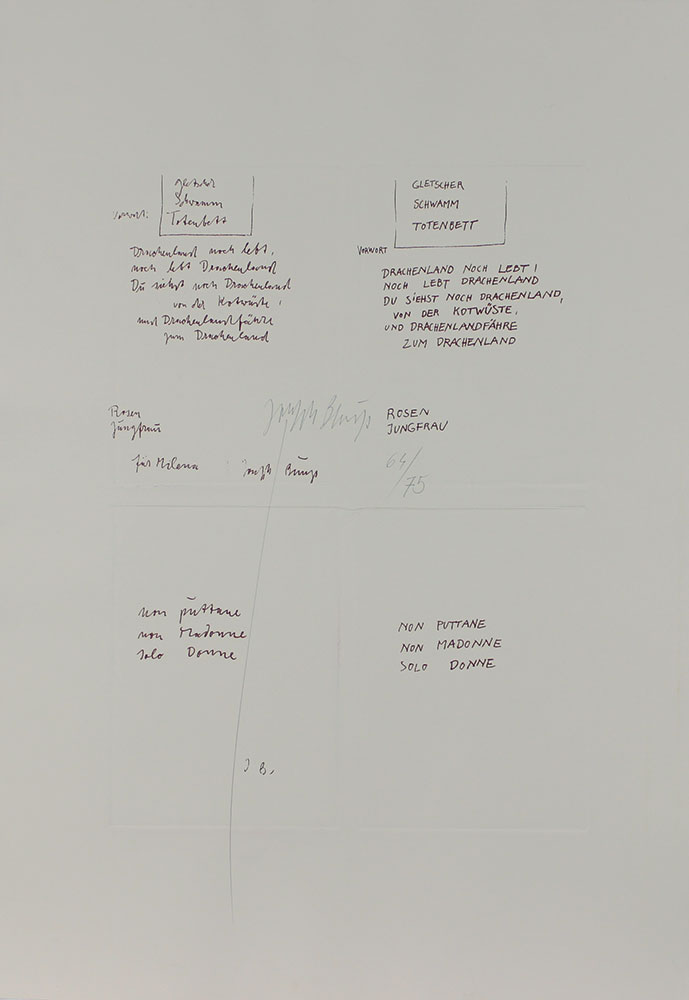 Gletscher
Schwamm
Totenbett
Vorwort:
Drachenland noch lebt,
noch lebt Drachenland
Du siehst noch Drachenland
von der Kotwüste,
und Drachenlandfähre
zum Drachenland
GLETSCHER
SCHWAMM
TOTENBETT
VORWORT
DRACHENLAND NOCH LEBT!
NOCH LEBT DRACHENLAND
DU SIEHST NOCH DRACHENLAND,
VON DER KOTWÜSTE,
UND DRACHENLANDFÄHRE
ZUM DRACHENLAND
Rosen
Jungfrau
Joseph Beuys
ROSEN
JUNGFRAU
für Milena Joseph Beuys
64/75
non puttane
non Madonne
solo Donne
NON PUTTANE
NON MADONNE
SOLO DONNE
J B.